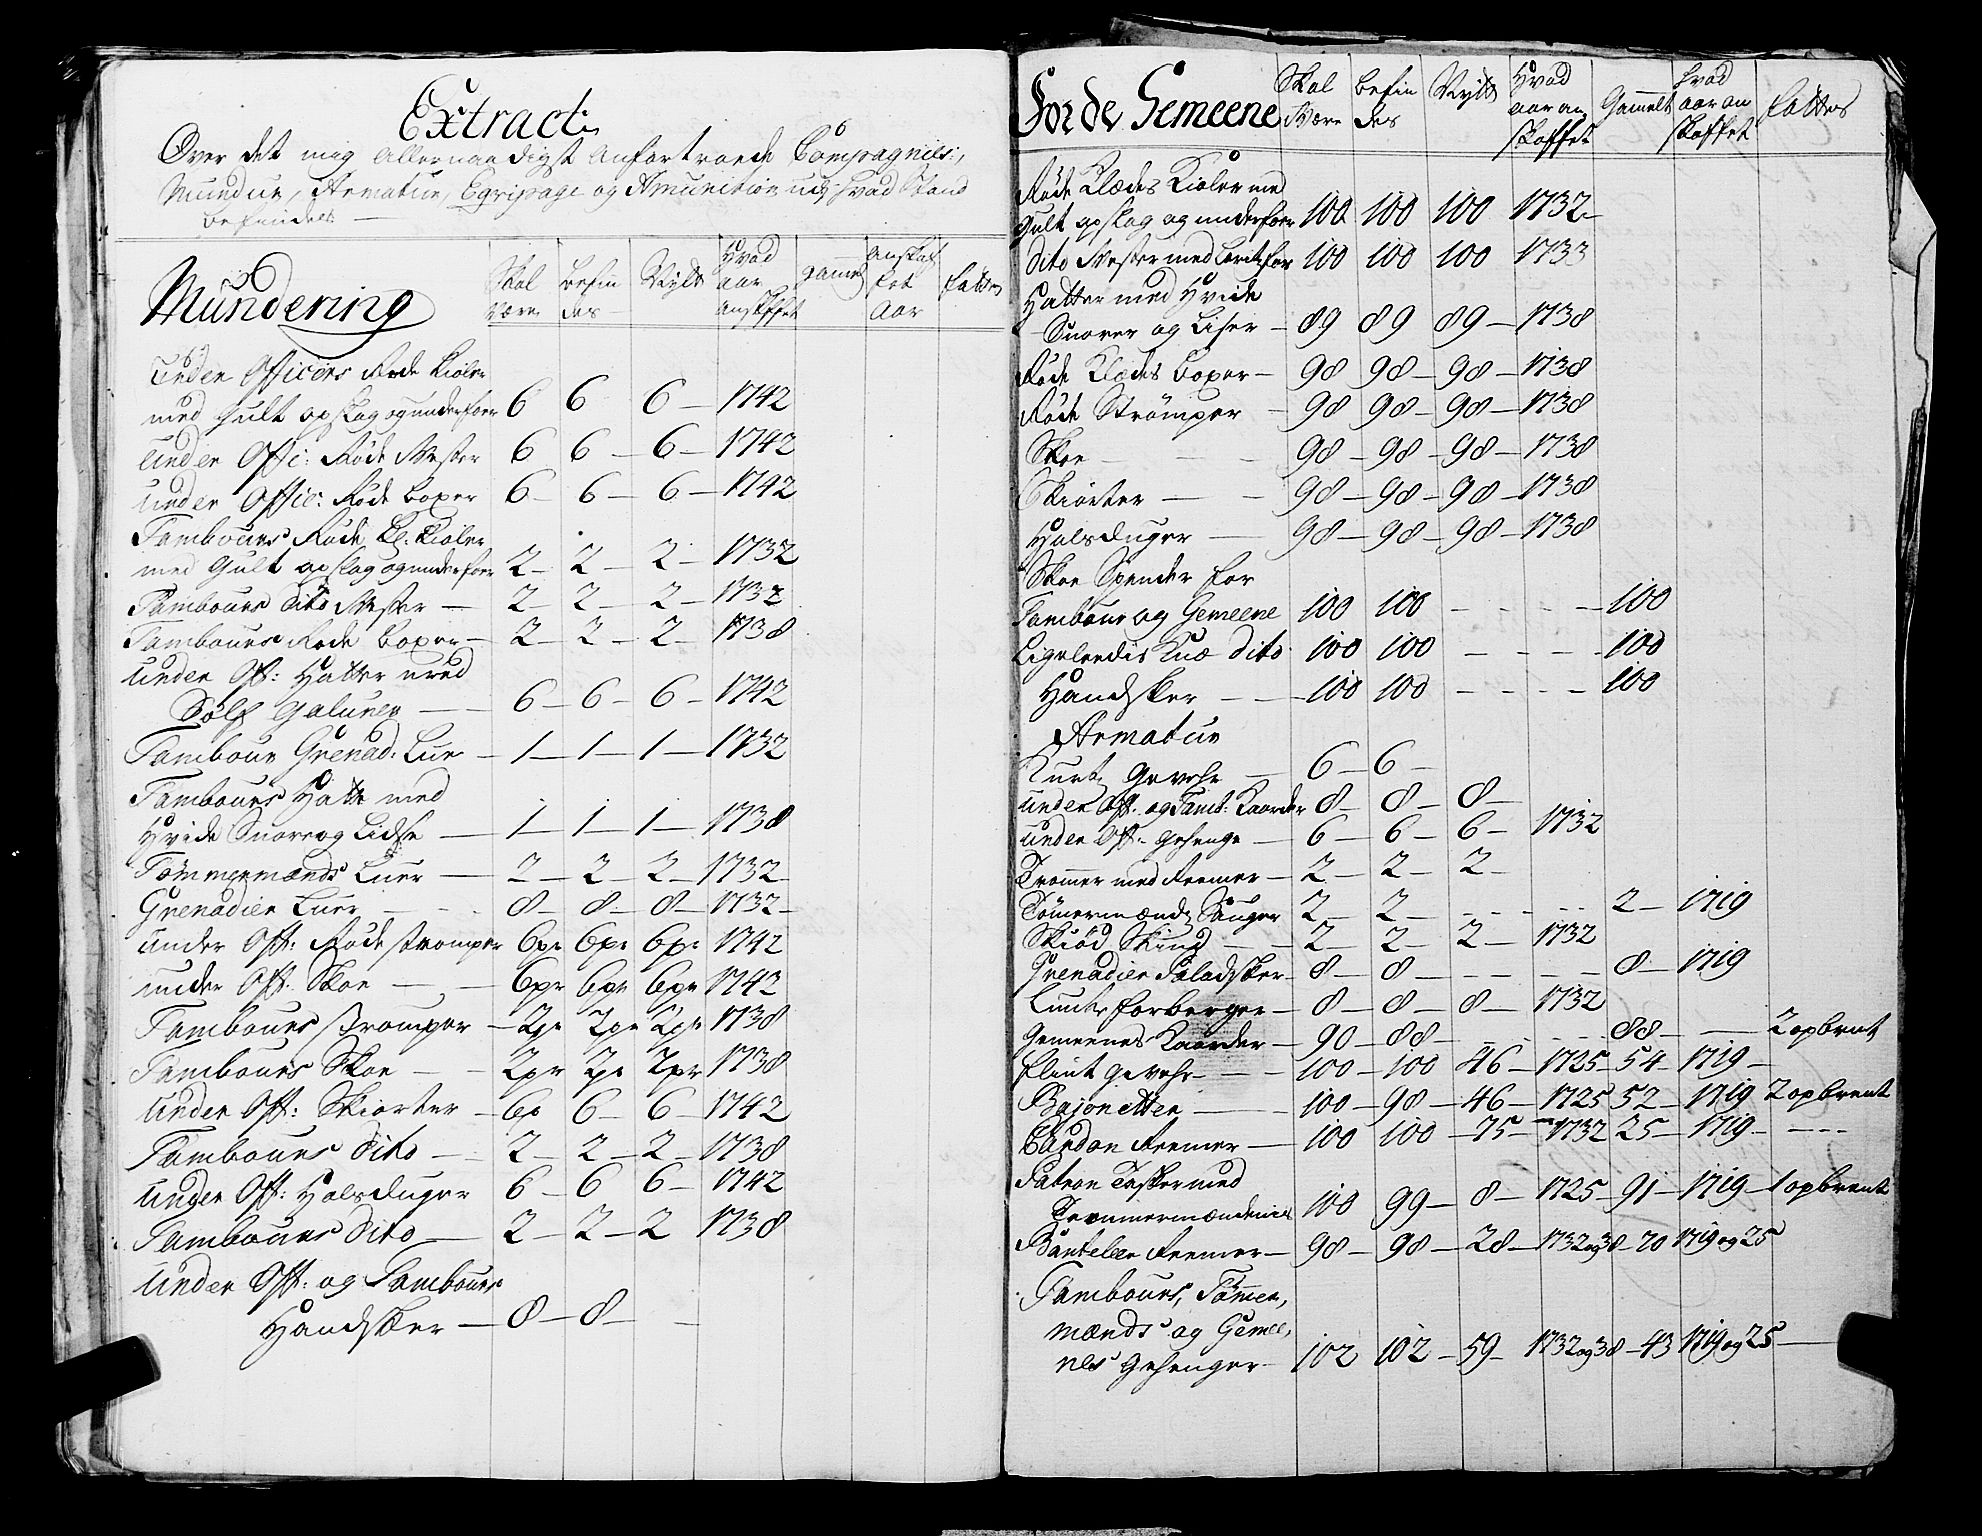 Extract
Over det mig allernaadigst anfortroede Compagnies
Mundur, Armatur, Eqvipage og Amunition udj hvad Stand
befindes —
Mundering
Skal være | befin des | Nytt | Hvad aar anskaffet | gamel | anskaffet aar | fattes
Under Officers Røde Kioler
med Gult opslag og underfoer 6 6 6 — 1742
Under Offi: Røde Vester 6 6 — 6 — 1742
Under Offic: Røde boxer 6 — 6 — 6 — 1742
Tambours Røde Kl: Kioler
med Gult opslag og underfoer 2 — 2 — 2 — 1732
Tambours dito Vester — 2 — 2 — 2 — 1732
Tambours Røde boxer — 2 — 2 — 2 — 1738
Under Off: Hatter med
Sølf Galuner — 6 — 6 — 6 — 1742
Tambour Grenad: Lue — 1 — 1 — 1 — 1732
Tambours Hatt med
Hvide Snore og Lidse — 1 — 1 — 1 — 1738
Tømmermænds Luer — 2 — 2 — 2 — 1732
Grenadier Luer — 8 — 8 — 8 — 1732 —
Under Off: Røde strømper 6pr 6pr 6pr 1742
under Off: Skoe — 6pr 6pr 6pr 1742
Tambours strømper — 2pr 2pr 2pr 1738
Tambours Skoe — 2pr 2pr 2pr 1738
Under Off: Skiorter — 6 6 — 6 — 1742
Tambours dito — 2 — 2 — 2 — 1738
Under Off: Halsduger 6 — 6 6 — 1742
Tambours dito — 2 — 2 — 2 1738
Under Off: og Tambours
Handsker — 8 — 8 —
For de Gemeene
Skal Være | befin des | Nytt | Hvad aar an skaffet | Gamelt | hvad aar an skaffet | fattes
Røde Klædes Kioler med
Gult opslag og underfoer 100 100 100 1732 —
dito Vester med Læritzfor 100 100 100 1733
Hatter med Hvide
Snorer og Liser — 89 89 89 — 1738
Røde Klædes boxer — 98 98 — 98 — 1738
Røde Strømper — 98 98 — 98 — 1738
Skoe — 98 — 98 — 98 — 1738
Skiorter — 98 — 98 — 98 — 1738
Halsduger — 98 — 98 — 98 — 1738
Skoe Spender for
Tambour og Gemeene 100 100 — 100
Ligeledis Knæ dito 100 100 — 100
Handsker — 100 100 — 100
Armatur
Kurtz Gevehr — 6 — 6 —
Under Off. og Tamb: Kaarder 8 — 8 — 8 —
Under Off: gehenge — 6 — 6 — 6 — 1732
Tromer med Reemer — 2 — 2 — 2 —
Tømermændz Sauger 2 — 2 — 2 — 1719
Skiød Skind — 2 — 2 — 2 — 1732
Grenadier Paladsker — 8 — 8 — 8 — 1719
Lunteforberger — 8 — 8 — 8 — 1732
Gemeenes Kaarder — 90 — 88 — 88 — 2 opbrent
flint gevehr — 100 — 100 46 — 1725 — 54 — 1719 —
Bajonetter — 100 — 98 — 46 — 1725 52 — 1719 2 opbrent
Cardon Reemer — 100 100 — 75 — 1732 25 — 1719 —
Patron Tasker med
100 99 — 8 — 1725 — 91 — 1719 — 1 opbrent
Banteleer Reemer — 98 — 98 — 28 — 1732 og 38 — 70 1719 og 25
Tambours, Tømer,
mænds og Gemee,
nes Gehenger — 102 102 — 59 — 1732 og 38 — 43 1719 og 25 —